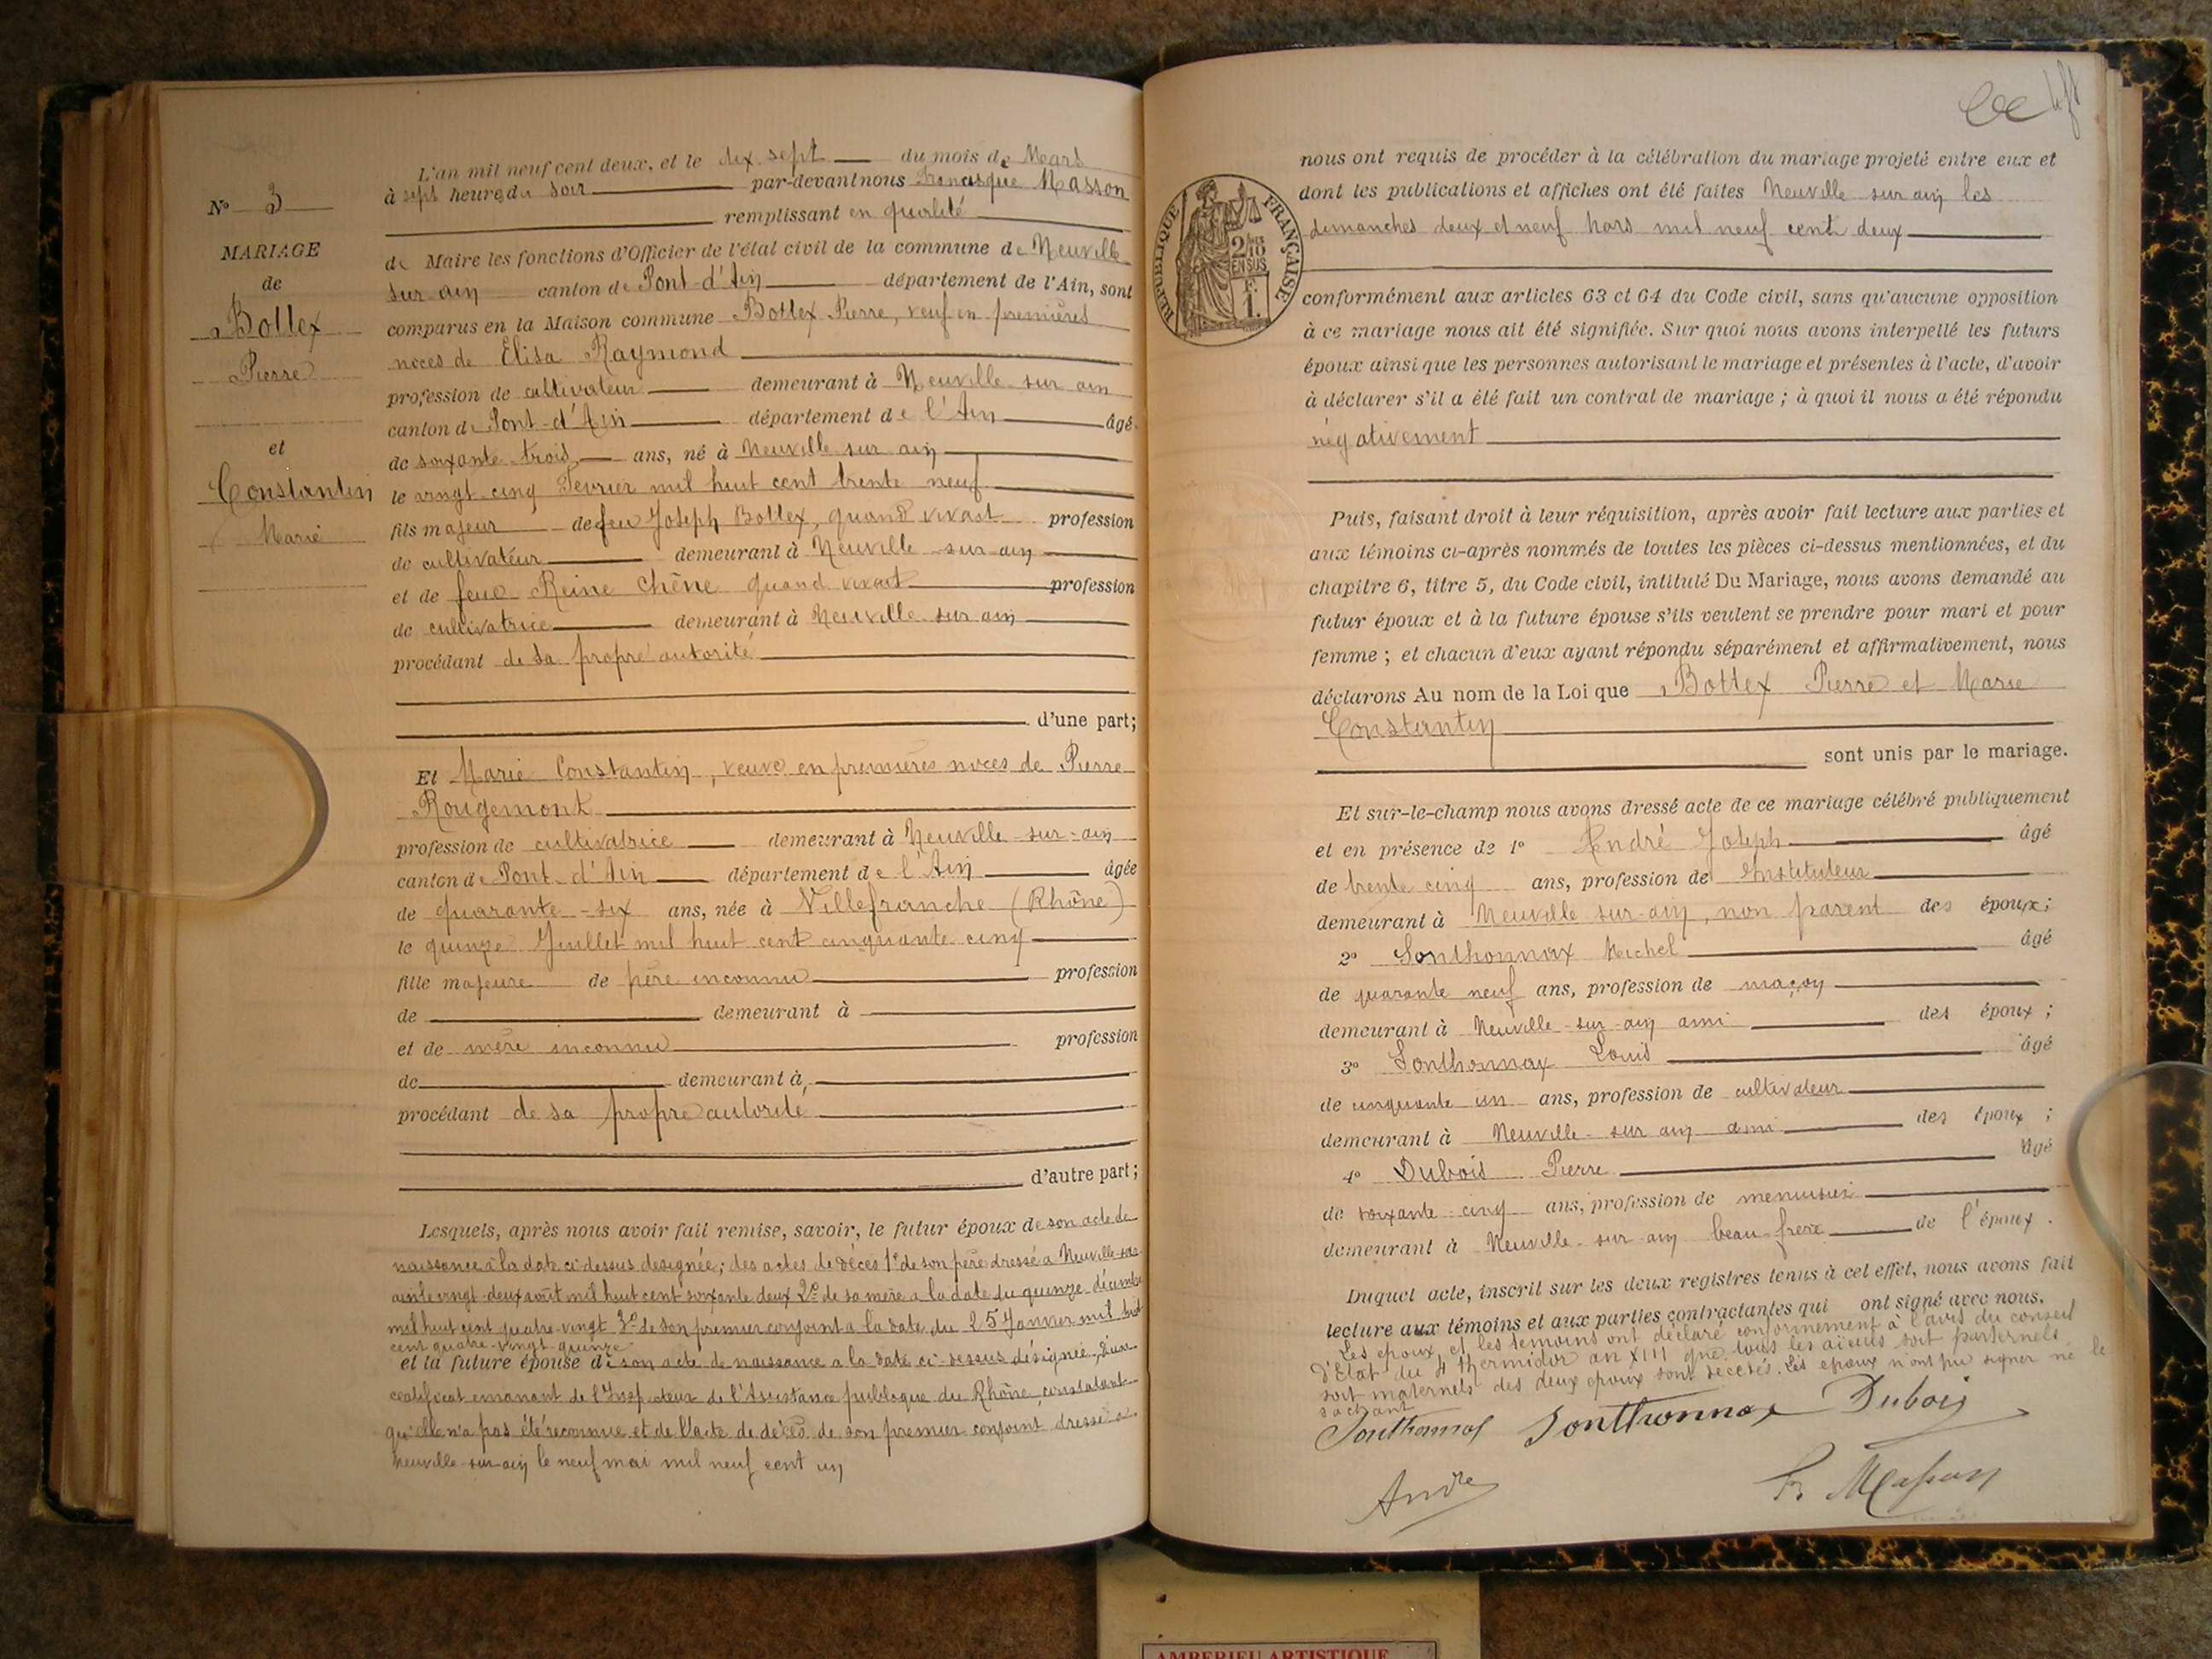 L'an mil neuf cent deux, et le dix sept du mois de Mars
à sept heures du soir par-devant nous Francisque Masson
remplissant en qualité
de Maire les fonctions d'Officier de l'état civil de la commune de Neuville
sur ain canton de Pont-d'Ain département de l'Ain, sont
comparus en la Maison commune Bollex Pierre, veuf en premières
noces de Elisa Raymond
profession de cultivateur demeurant à Neuville sur ain
canton de Pont-d'Ain département de l'Ain âgé
de soixante trois ans, né à Neuville sur ain
le vingt-cinq Fevrier mil huit cent trente neuf
fils majeur de feu Joseph Bollex, quand vivait profession
de cultivateur demeurant à Neuville sur ain
et de feue Reine Chêne quand vivait profession
de cultivatrice demeurant à Neuville sur ain
procédant de sa propre autorité
d'une part;
Et Marie Constantin, veuve en premières noces de Pierre
Rougemont
profession de cultivatrice demeurant à Neuville-sur-ain
canton de Pont-d'Ain département de l'Ain âgée
de quarante-six ans, née à Villefranche (Rhône)
le quinze Juillet mil huit cent cinquante cinq
fille majeure de père inconnu profession
de demeurant à
et de mère inconnue profession
de demeurant à
procédant de sa propre autorité
d'autre part;
Lesquels, après nous avoir fait remise, savoir, le futur époux de son acte de
naissance à la date ci-dessus designée; des actes de décès 1º de son père dressé a Neuville-sur-
ain le vingt-deux août mil huit cent soixante deux 2º de sa mère a la date du quinze décembre
mil huit cent quatre-vingt 3º de son premier conjoint a la date du 25 Janvier mil huit
cent quatre-vingt-quinze
et la future épouse de son acte de naissance a la date ci-dessus désignée, d'un
certificat emanant de l'Inspecteur de l'Assistance publique du Rhône, constatant
qu'elle n'a pas été reconnue et de l'acte de décès de son premier conjoint dressé a
Neuville-sur-ain le neuf mai mil neuf cent un
Nº 3
MARIAGE
de
Bollex
Pierre
et
Constantin
Marie
nous ont requis de procéder à la célébration du mariage projeté entre eux et
dont les publications et affiches ont été faites Neuville sur ain les
dimanches deux et neuf Mars mil neuf cent deux
RÉPUBLIQUE FRANÇAISE
2/10
EN SUS
1 F.
conformément aux articles 63 et 64 du Code civil, sans qu'aucune opposition
à ce mariage nous ait été signifiée. Sur quoi nous avons interpellé les futurs
époux ainsi que les personnes autorisant le mariage et présentes à l'acte, d'avoir
à déclarer s'il a été fait un contrat de mariage; à quoi il nous a été répondu
négativement
Puis, faisant droit à leur réquisition, après avoir fait lecture aux parties et
aux témoins ci-après nommés de toutes les pièces ci-dessus mentionnées, et du
chapitre 6, titre 5, du Code civil, intitulé Du Mariage, nous avons demandé au
futur époux et à la future épouse s'ils veulent se prendre pour mari et pour
femme; et chacun d'eux ayant répondu séparément et affirmativement, nous
déclarons Au nom de la Loi que Bollex Pierre et Marie
Constantin
sont unis par le mariage.
Et sur-le-champ nous avons dressé acte de ce mariage célébré publiquement
et en présence de 1º André Joseph âgé
de trente cinq ans, profession de Instituteur
demeurant à Neuville sur-ain, non parent des époux;
2º Sonthonnax Michel âgé
de quarante neuf ans, profession de maçon
demeurant à Neuville-sur-ain ami des époux;
3º Sonthonnax Louis âgé
de cinquante un ans, profession de cultivateur
demeurant à Neuville-sur ain ami des époux;
4º Dubois Pierre âgé
de soixante-cinq ans, profession de menuisier
demeurant à Neuville-sur ain beau-frère de l'époux.
Duquel acte, inscrit sur les deux registres tenus à cet effet, nous avons fait
lecture aux témoins et aux parties contractantes qui ont signé avec nous.
Les époux et les témoins ont déclaré conformément à l'avis du conseil
d'Etat du 4 thermidor an XIII que tous les aïeuls soit paternels
soit maternels des deux époux sont décédés. Les epoux n'ont pu signer ne le
sachant
Sonthonnax Sonthonnax Dubois
André Fr Masson
AMBERIEU ARTISTIQUE